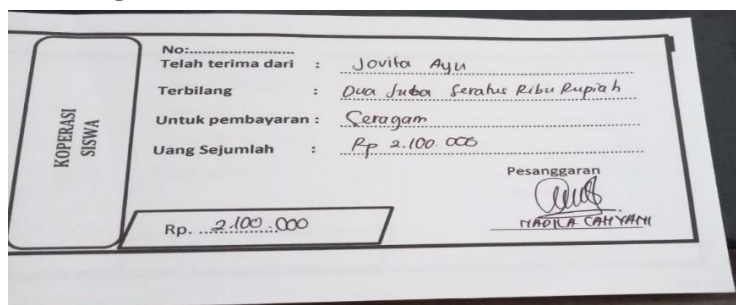 KOPERASI
SISWA
No:......................
Telah terima dari : Jovita Ayu
Terbilang : Dua Juta Seratus Ribu Rupiah
Untuk pembayaran : Seragam
Uang Sejumlah : Rp 2.100.000
Pesanggaran
NADILA CAHYANI
Rp. 2.100.000